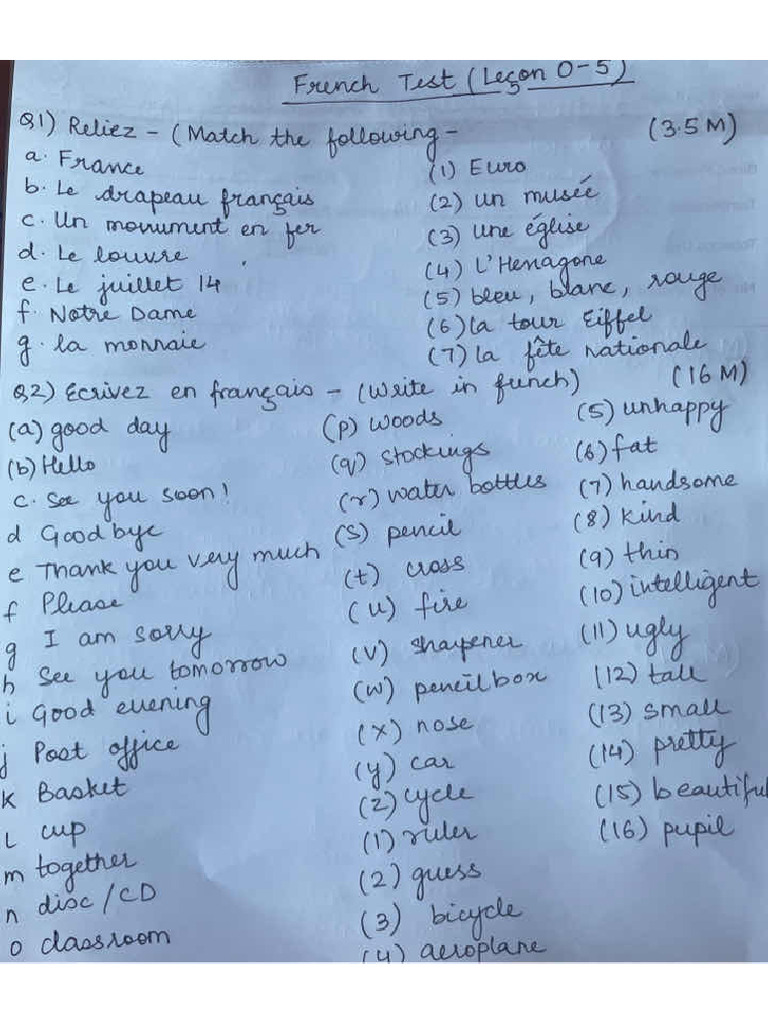 French Test (Leçon 0-5)
Q1) Reliez - (Match the following - (3.5 M)
a. France (1) Euro
b. Le drapeau français (2) un musée
c. Un monument en fer (3) une église
d. Le louvre (4) L'Hexagone
e. Le juillet 14 (5) bleu, blanc, rouge
f. Notre Dame (6) la tour Eiffel
g. la monnaie (7) la fête nationale
Q2) Ecrivez en français - (Write in french) (16 M)
(a) good day (p) woods (5) unhappy
(b) Hello (q) stockings (6) fat
c. See you soon! (r) water bottles (7) handsome
d Good bye (s) pencil (8) kind
e Thank you very much (t) cross (9) thin
f Please (u) fire (10) intelligent
g I am sorry (v) sharpener (11) ugly
h See you tomorrow (w) pencil box (12) tall
i Good evening (x) nose (13) small
j Post office (y) car (14) pretty
k Basket (z) cycle (15) beautiful
l cup (1) ruler (16) pupil
m together (2) guess
n disc / CD (3) bicycle
o classroom (4) aeroplane